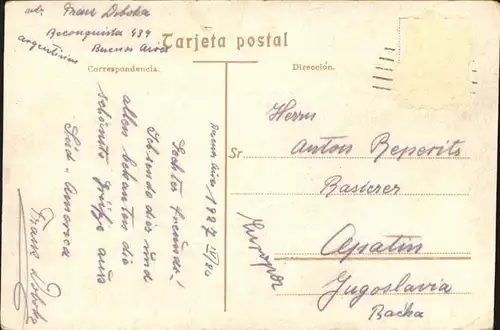 abs. Franz Doboka
Reconquista 439
Buenos Aires
Argentinien
Tarjeta postal
Correspondencia.
Dirección.
Buenos Aires 1927 IV/20
Ich sende dir und
allen bekanten die
schönste Grüße aus
Süd-America
Franz Doboka
Herrn
Sr. Anton Reperits
Apatin
Jugoslavia
Backa
Europa